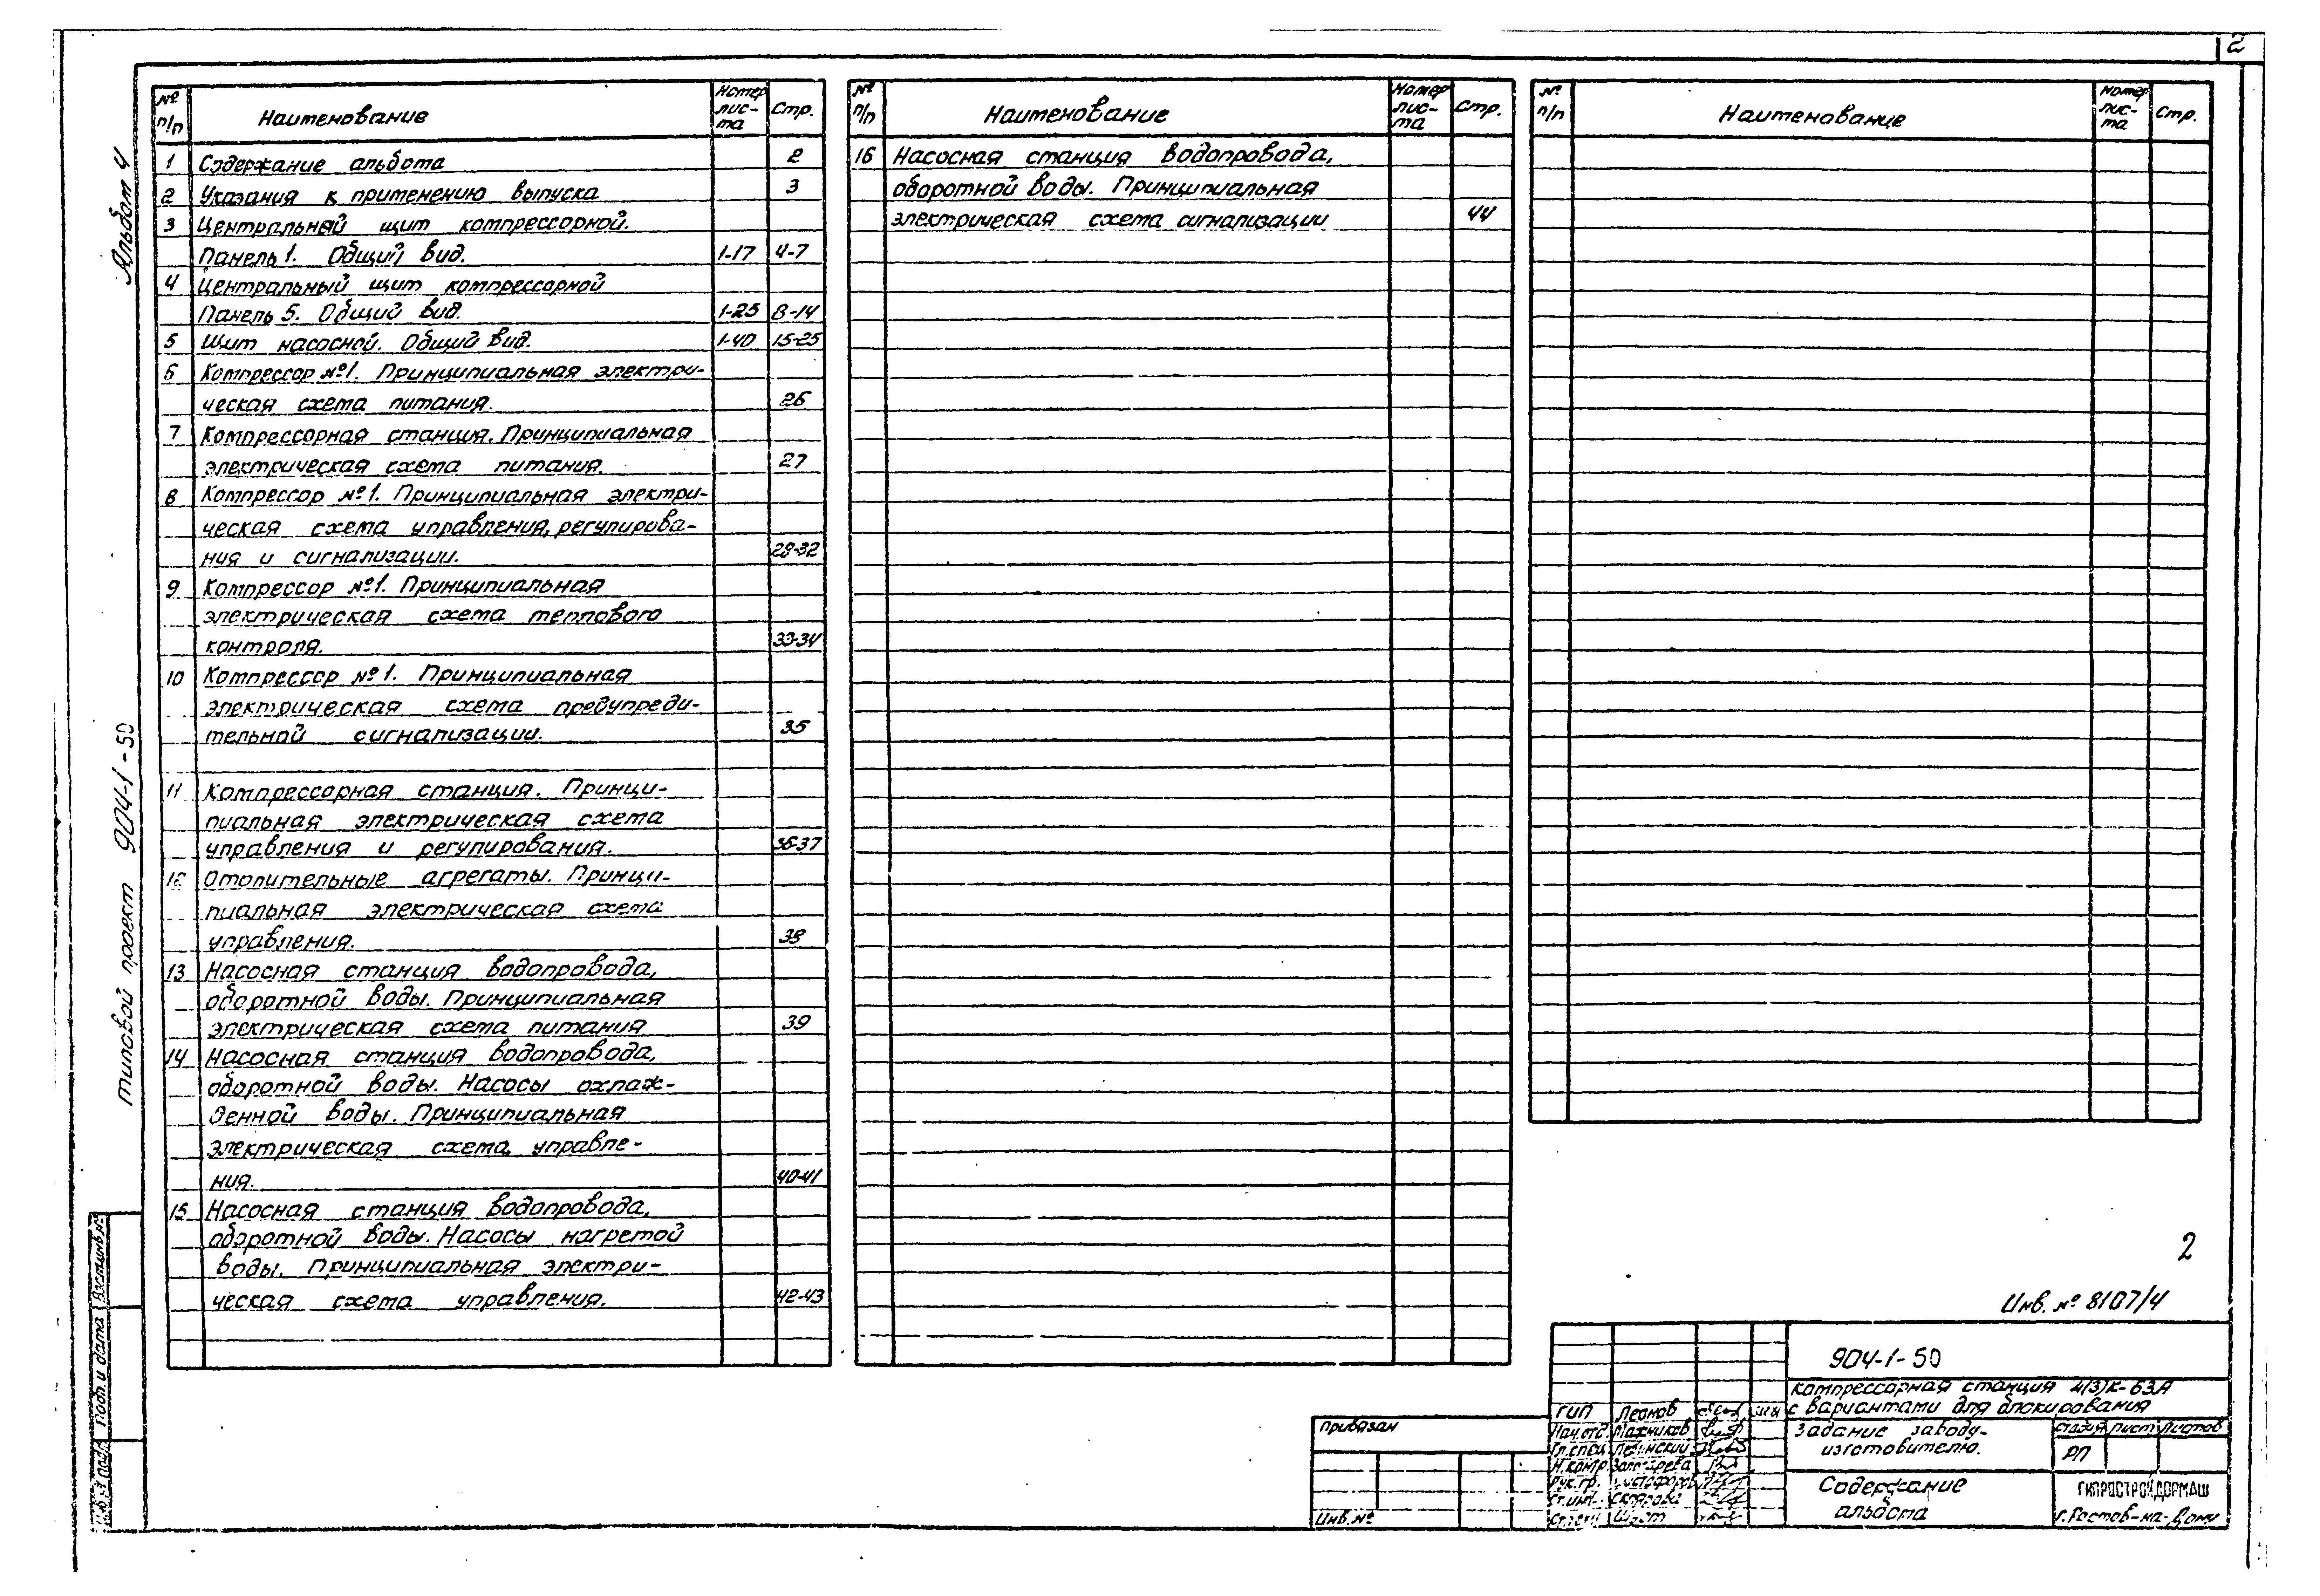 2
Альбом 4
типовой проект 904-1-50
№ п/п Наименование Номер лис-та Стр.
1 Содержание альбома 2
2 Указания к применению выпуска 3
3 Центральный щит компрессорной.
Панель 1. Общий вид. 1-17 4-7
4 Центральный щит компрессорной
Панель 5. Общий вид. 1-25 8-14
5 Щит насосной. Общий вид. 1-40 15-25
6 Компрессор №1. Принципиальная электри-
ческая схема питания. 26
7 Компрессорная станция. Принципиальная
электрическая схема питания. 27
8 Компрессор №1. Принципиальная электри-
ческая схема управления, регулирова-
ния и сигнализации. 28-32
9 Компрессор №1. Принципиальная
электрическая схема теплового
контроля. 33-34
10 Компрессор №1. Принципиальная
электрическая схема предупреди-
тельной сигнализации. 35
11 Компрессорная станция. Принци-
пиальная электрическая схема
управления и регулирования. 36-37
12 Отопительные агрегаты. Принци-
пиальная электрическая схема
управления. 38
13 Насосная станция водопровода,
оборотной воды. Принципиальная
электрическая схема питания 39
14 Насосная станция водопровода,
оборотной воды. Насосы охлаж-
денной воды. Принципиальная
электрическая схема управле-
ния. 40-41
15 Насосная станция водопровода,
оборотной воды. Насосы нагретой
воды. Принципиальная электри-
ческая схема управления. 42-43
№ п/п Наименование Номер лис-та Стр.
16 Насосная станция водопровода,
оборотной воды. Принципиальная
электрическая схема сигнализации 44
№ п/п Наименование Номер лис-та Стр.
2
Инв. № 8107/4
904-1-50
Компрессорная станция 4(3)К-63А
с вариантами для блокирования
Задание заводу-
изготовителю.
стадия лист листов
РП
Содержание
альбома
ГИПРОСТРОЙДОРМАШ
г. Ростов-на-Дону
ГИП Леонов
Нач.отд. Мажников
Гл.спец.
Н.контр.
Рук.гр.
Ст.инж.
Привязан
Инв. №
Взам.инв.№
Подп. и дата
Инв.№ подл.